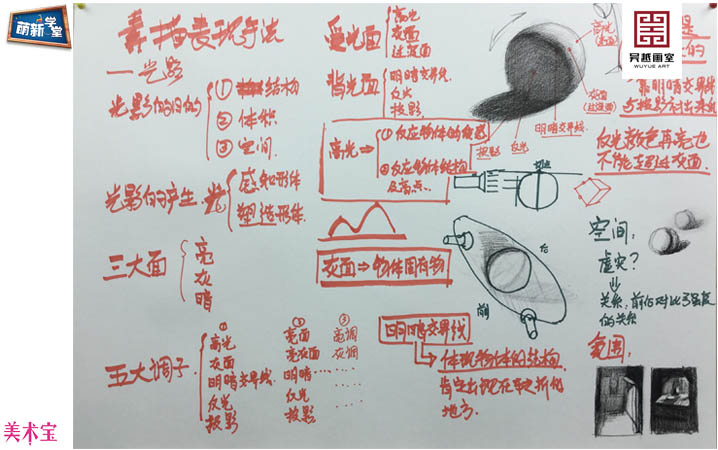 萌新学堂
素描表现手法
一 光影
光影的目的
① 结构
② 体积
③ 空间.
光影的产生.光
感知形体
塑造形体.
三大面
亮
灰
暗
五大调子
①
高光
灰面
明暗交界线.
反光
投影
②
亮面
亮灰面
明暗
反光
投影
③
亮调
灰调
受光面
高光
灰面
过渡面
背光面
明暗交界线.
反光
投影.
高光⇒
①反应物体的质感
②反应物体结构
及高点.
灰面⇒物体固有物
明暗交界线
体现物体的结构.
肯定出现在转折的
地方.
高光
明暗交界线.
投影
反光
切点
后
前
吴越画室
WUYUE ART
是
的
靠明暗交界线
与投影衬出来的
反光颜色再亮也
不能超过灰面.
空间:
虚实?
⇓
关系,前后对比了强度
的关系
氛围:
美术宝